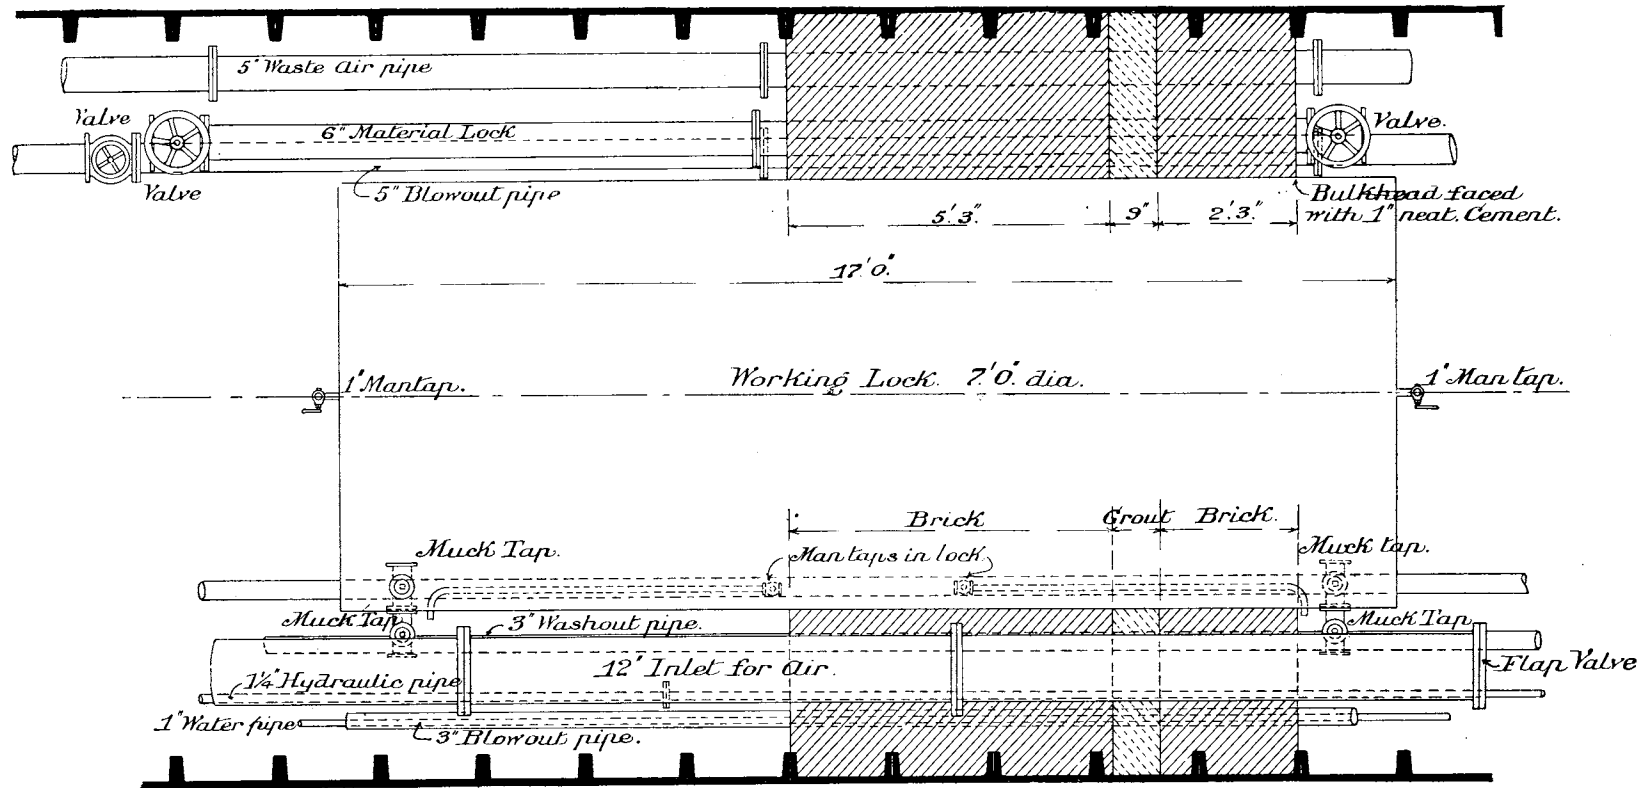 5" Waste Air pipe
Valve
6" Material Lock
Valve.
Valve
5" Blowout pipe
Bulkhead faced
with 1" neat. Cement.
5'.3".
9"
2'.3."
17'.0."
1" Mantap.
Working Lock. 7'.0". dia.
1" Man tap.
Brick
Grout
Brick.
Muck Tap.
Man taps in lock
Muck tap.
Muck Tap
3" Washout pipe.
Muck Tap
12" Inlet for Air.
Flap Valve
1¼" Hydraulic pipe
1" Water pipe
3" Blowout pipe.